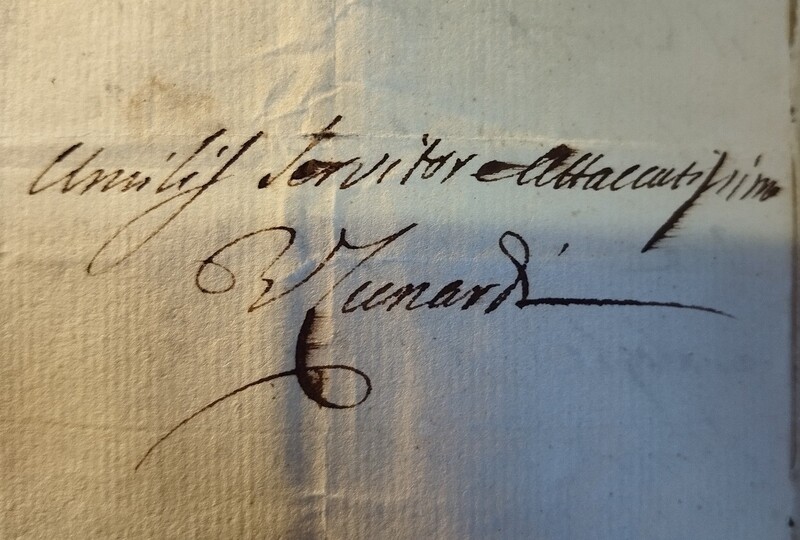 Umiliſ Servitor Attaccatiſsimo
V Lunardi